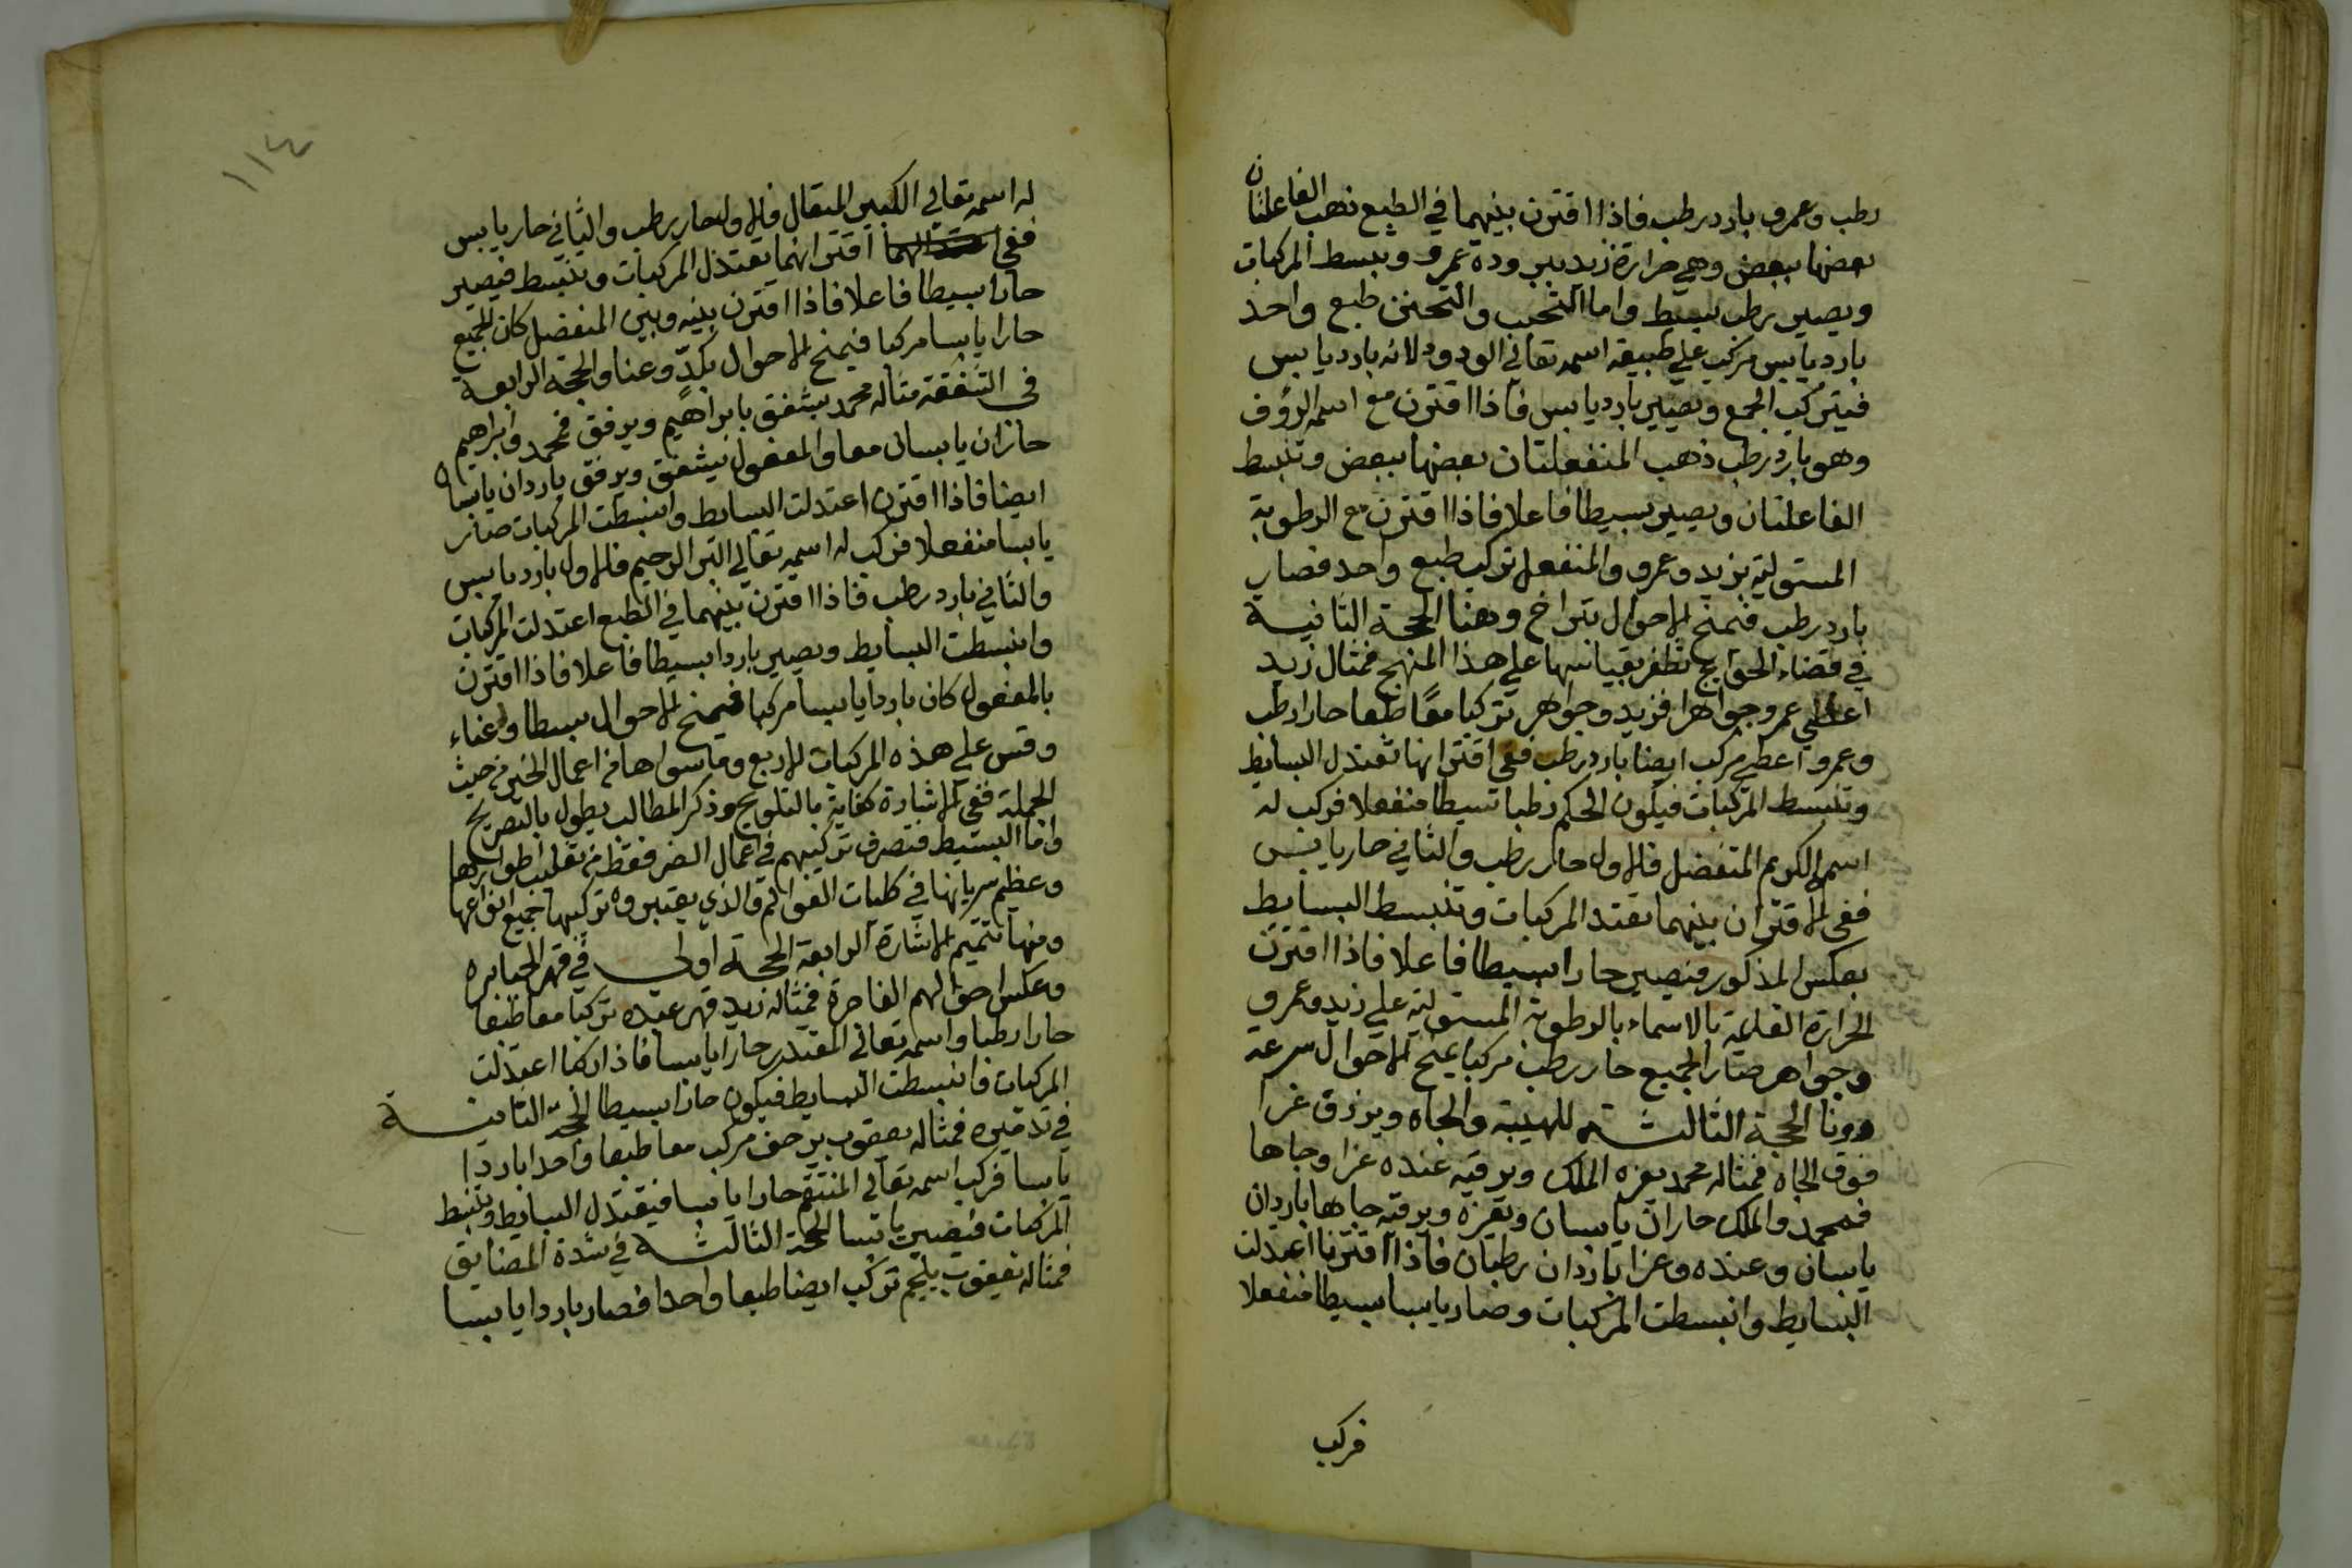 رطب وعمرو بارد رطب فاذا اقترن بينهما في الطبع ذهب الفاعلتان
بعضها ببعض وهي حرارة زيد ببرودة عمرو وتبسط المركبات
ويصير رطب بسيط واما التحبب والتحنن طبع واحد
بارد يابس مركب علي طبيعة اسمه تعالي الودود لانه بارد يابس
فيتركب الجمع ويصير بارد يابس فاذا اقترن مع اسمه الرؤف
وهو بارد رطب ذهب المنفعلتان بعضها ببعض وتنبسط
الفاعلتان ويصير بسيطا فاعلا فاذا اقترن مع الرطوبة
المستولية بزيد وعمرو والمنفعل تركب طبع واحد فصار
بارد رطب فتمنح الاحوال بتراخ وهنا الحجة الثانية
في قضاء الحوايج تظفر بقياسها علي هذا المنهج فمثال زيد
اعطي عمر وجواهرا فزيد وجواهر تركبا معًا طبعا حارا رطب
وعمرو اعطي مركب ايضا بارد رطب ففي اقترانها تعتدل البسايط
وتنبسط المركبات فيكون الحكم رطبا بسيطا منفعلا فركب له
اسم الكريم المتفضل فالاول حار رطب والثاني حار يابس
ففي الاقتران بينهما تعتد المركبات وتنبسط البسايط
بعكس المذكور فيصير حارا بسيطا فاعلا فاذا اقترن
الحرارة القايمة بالاسماء بالرطوبة المستولية علي زيد وعمرو
وجواهر صار الجميع حار رطب مركبا يمنح الاحوال سرعة
الحجة الثالثة للهيبة والجاه ويرزق عزا
فوق الجاه فمثاله محمد يعزه الملك ويرقيه عنده عزا وجاها
فمحمد والملك حاران يابسان وتعزه ويرقيه جاها باردان
يابسان وعنده وعزا باردان رطبان فاذا اقترنا اعتدلت
البسايط وانبسطت المركبات وصار يابسا بسيطا منفعلا
فركب
١١٤
له اسمه تعالي الكبير المتعال فالاول حار رطب والثاني حار يابس
ففي اقترانهما تعتدل المركبات وتنبسط فيصير
حارا بسيطا فاعلا فاذا اقترن بينه وبين المنفصل كان للجميع
حارا يابسا مركبا فيمنح الاحوال بكدّ وعنا والحجة الرابعة
في الشفقة مثاله محمد يشفق بابراهيم ويرفق فمحمد وابراهيم
حاران يابسان معا والمفعول يشفق ويرفق باردان يابسان
ايضا فاذا اقترن اعتدلت البسايط وانبسطت المركبات صار
يابسا منفعلا فركب له اسمه تعالي البر الرحيم فالاول بارد يابس
والثاني بارد رطب فاذا اقترن بينهما في الطبع اعتدلت المركبات
وانبسطت البسايط ويصير باردا بسيطا فاعلا فاذا اقترن
بالمفعول كان باردا يابسا مركبا فيمنح الاحوال بسطا وغناء
وقس علي هذه المركبات الاربع وما سواها في اعمال الخير من حيث
الجملة ففي الاشارة كفاية بالتلويح وذكر المطالب يطول بالتصريح
واما البسيط فتصرف تركيبهم في اعمال الضر فقط من تقليب اطوارها
وعظم سريانها في كليات العوالم والذي يعتبروه تركيبها جميع انواعها
ومنها تتميم الاشارة الرابعة الحجة اولي في قهر الجبابره
وعكس احوالهم الفاجرة فمثاله زيد قهر عبده تركبا معا طبعا
حارا رطبا واسمه تعالي المقتدر حارا يابسا فاذا ركبا اعتدلت
المركبات وانبسطت البسايط فيكون حارا بسيطا الحجة الثانية
في تدميره فمثاله يعقوب يزحف مركب معا طبعا واحدا باردا
يابسا فركب اسمه تعالي المنتقم حارا يابسا فيعتدل البسايط وتنبسط
المركبات فيصير يابسا الحجة الثالثة في شدة المضايق
فمثاله يعقوب يلجم تركب ايضا طبعا واحدا فصار باردا يابسا